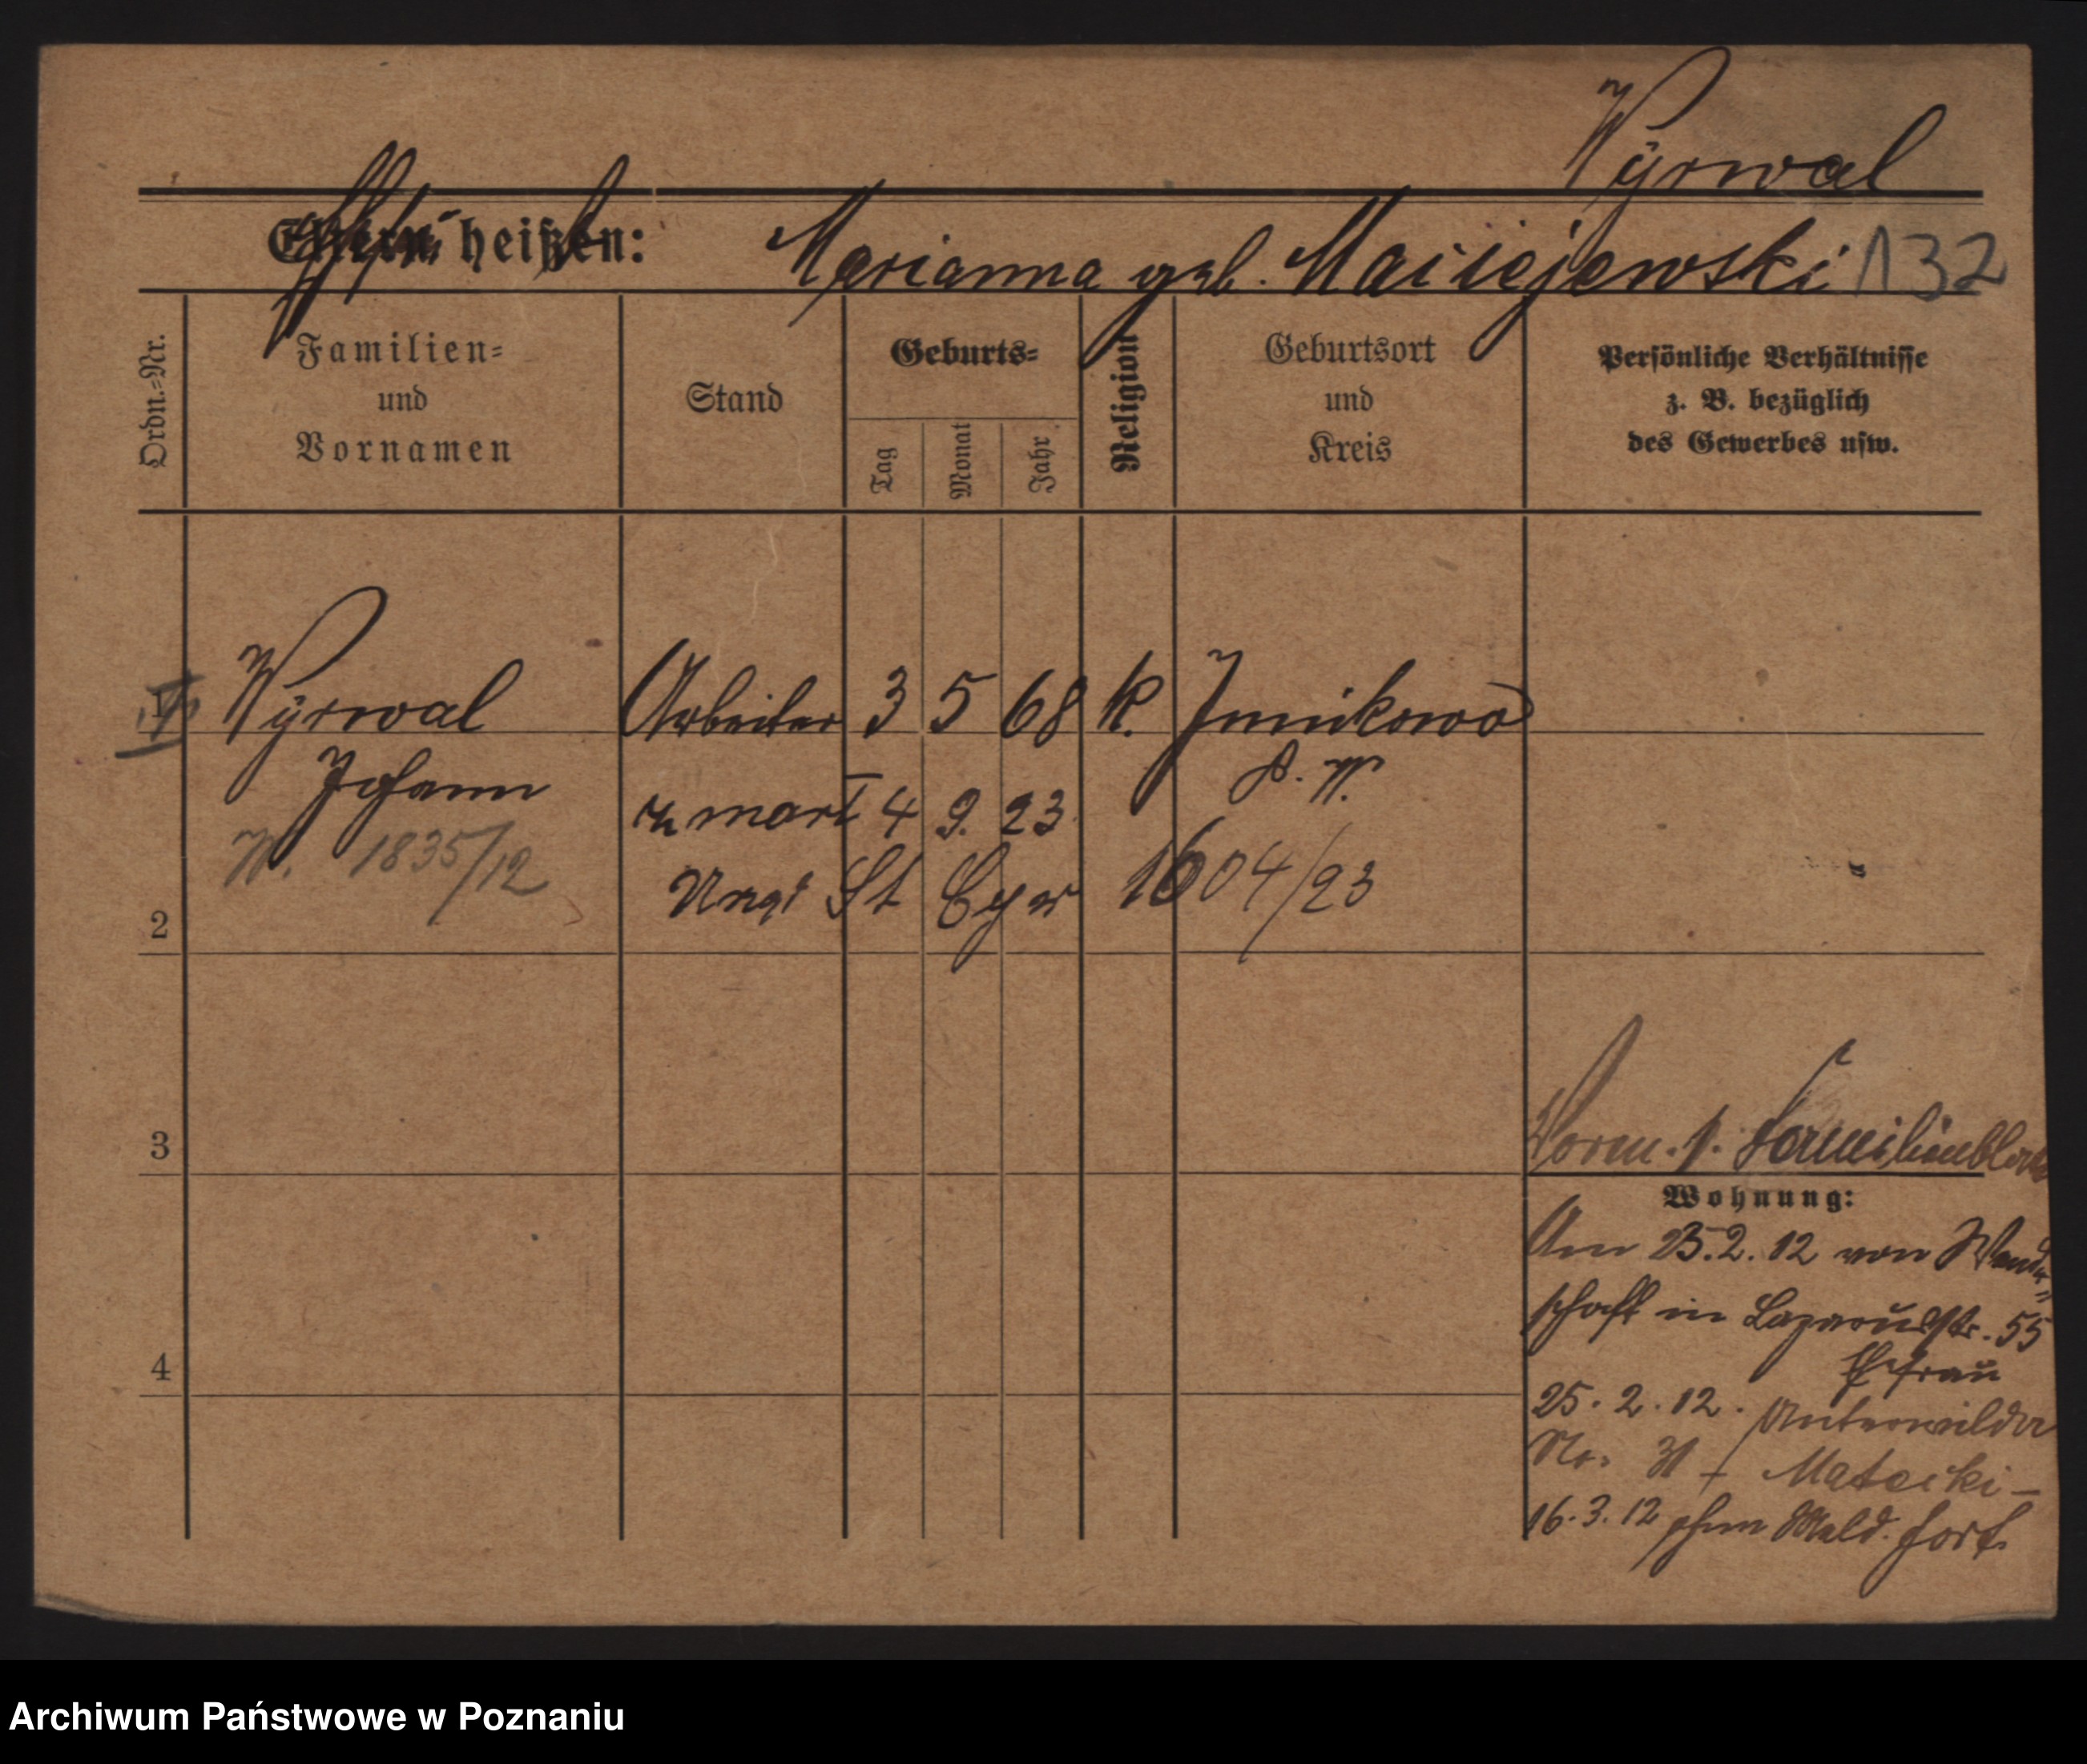 Wyrwal
Eltern heißen:
Marianna geb. Maciejewski 132
Ordn.-Nr.
Familien-
und
Vornamen
Stand
Geburts-
Tag
Monat
Jahr
Religion
Geburtsort
und
Kreis
Persönliche Verhältnisse
z. B. bezüglich
des Gewerbes usw.
1 Wyrwal Arbeiter 3 5 68 k. Junikowo
Johann P. W.
zmarł 4 9. 23
1835/12
Urząd St Cyw 1604/23
2
3
4
Verm. s. Familienblatt
Wohnung:
Am 23.2.12 von Wander-
schaft in Lazarusstr. 55
Ehefrau
25.2.12. Unterwilda
No. 31 - Matecki -
16.3.12 ohne Meld. fort.
Archiwum Państwowe w Poznaniu